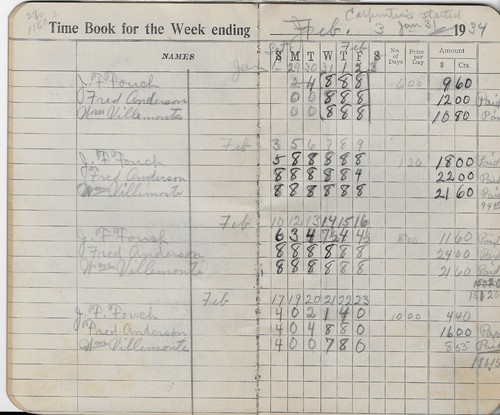 Carpenters started
Time Book for the Week ending Feb. 3 Jan 31 1934
NAMES S M T W T F S No. of Days Price per Day Amount
$ Cts.
Jan 29 30 31 1 2 3
J. F. Fouch 2 4 8 8 8 600 9 60
Fred Anderson 0 0 8 8 8 12 00 Paid
Wm Villemonte 0 0 8 8 8 10 80 Paid
Feb 3 5 6 7 8 9
J. F. Fouch 5 8 8 8 8 8 120 18 00 Paid
Fred Anderson 8 8 8 8 8 4 22 00 Paid
Wm Villemonte 8 8 8 8 8 8 21 60 Paid
Feb 10 12 13 14 15 16
J. F. Fouch 6 3 4 7½ 4 4½ 800 11 60 Paid
Fred Anderson 8 8 8 8 8 8 24 00 Paid
Wm Villemonte 8 8 8 8 8 8 21 60 Paid
Feb 17 19 20 21 22 23
J. F. Fouch 4 0 2 1 4 0 1000 4 40
Fred Anderson 4 0 4 8 8 0 16 00 Paid
Wm Villemonte 4 0 0 7 8 0 8 55 Paid